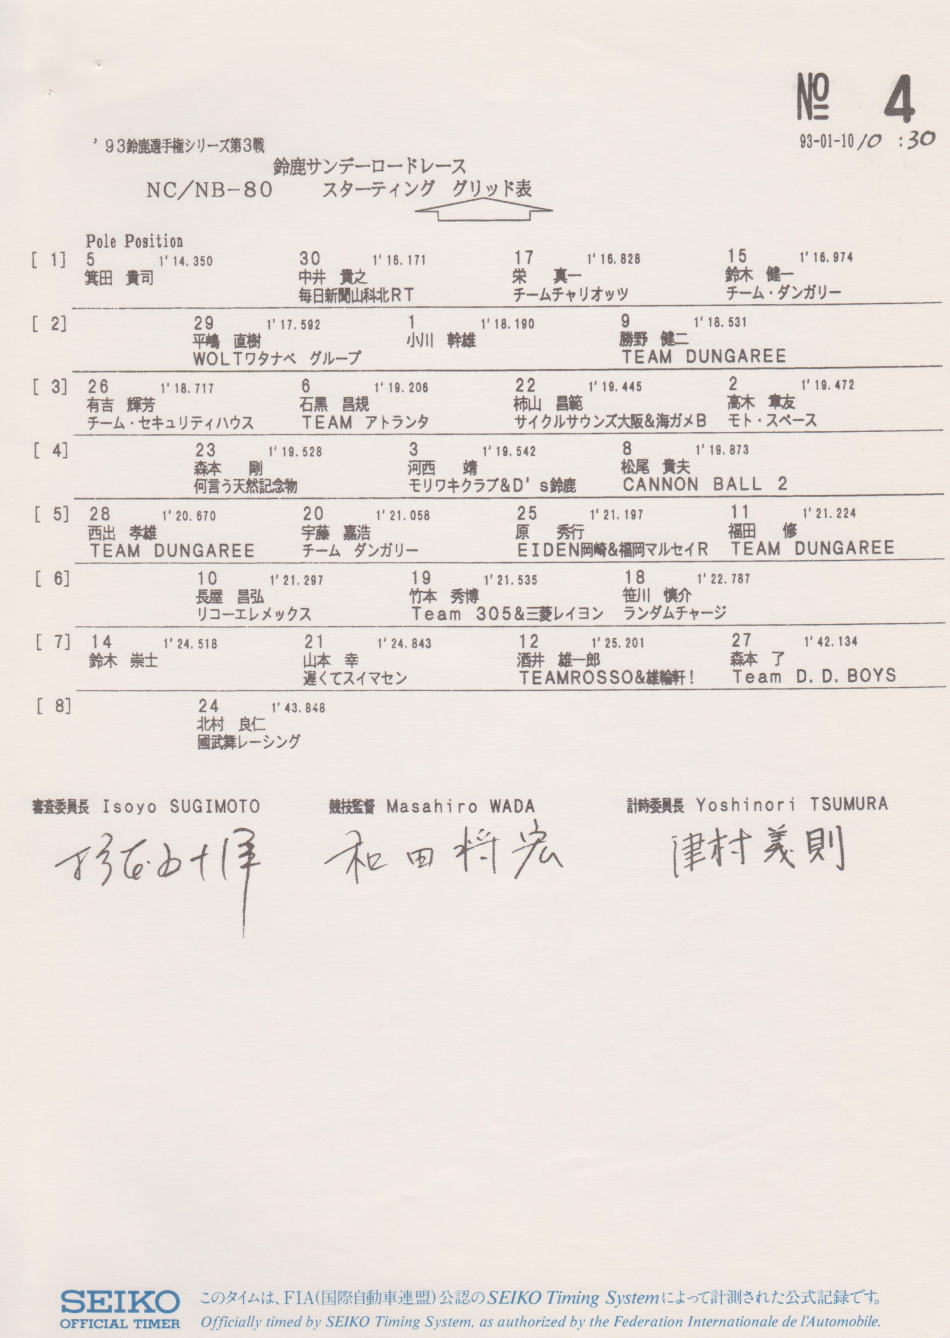 № 4
93-01-10 10:30
'93鈴鹿選手権シリーズ第3戦
鈴鹿サンデーロードレース
NC/NB-80 スターティング グリッド表
Pole Position
[ 1] 5 1'14.350 30 1'16.171 17 1'16.828 15 1'16.974
箕田 貴司 中井 貴之 栄 真一 鈴木 健一
毎日新聞山科北RT チームチャリオッツ チーム・ダンガリー
[ 2] 29 1'17.592 1 1'18.190 9 1'18.531
平嶋 直樹 小川 幹雄 勝野 健二
WOLTワタナベ グループ TEAM DUNGAREE
[ 3] 26 1'18.717 6 1'19.206 22 1'19.445 2 1'19.472
有吉 輝芳 石黒 昌規 柿山 昌範 高木 章友
チーム・セキュリティハウス TEAM アトランタ サイクルサウンズ大阪&海ガメB モト・スペース
[ 4] 23 1'19.528 3 1'19.542 8 1'19.873
森本 剛 河西 靖 松尾 貴夫
何言う天然記念物 モリワキクラブ&D's鈴鹿 CANNON BALL 2
[ 5] 28 1'20.670 20 1'21.058 25 1'21.197 11 1'21.224
西出 孝雄 宇藤 嘉浩 原 秀行 福田 修
TEAM DUNGAREE チーム ダンガリー EIDEN岡崎&福岡マルセイR TEAM DUNGAREE
[ 6] 10 1'21.297 19 1'21.535 18 1'22.787
長屋 昌弘 竹本 秀博 笹川 慎介
リコーエレメックス Team 305&三菱レイヨン ランダムチャージ
[ 7] 14 1'24.518 21 1'24.843 12 1'25.201 27 1'42.134
鈴木 崇士 山本 幸 酒井 雄一郎 森本 了
遅くてスイマセン TEAMROSSO&雄輪軒! Team D.D.BOYS
[ 8] 24 1'43.848
北村 良仁
國武舞レーシング
審査委員長 Isoyo SUGIMOTO 競技監督 Masahiro WADA 計時委員長 Yoshinori TSUMURA
和田将宏 津村義則
SEIKO このタイムは、FIA(国際自動車連盟)公認のSEIKO Timing Systemによって計測された公式記録です。
OFFICIAL TIMER Officially timed by SEIKO Timing System, as authorized by the Federation Internationale de l'Automobile.